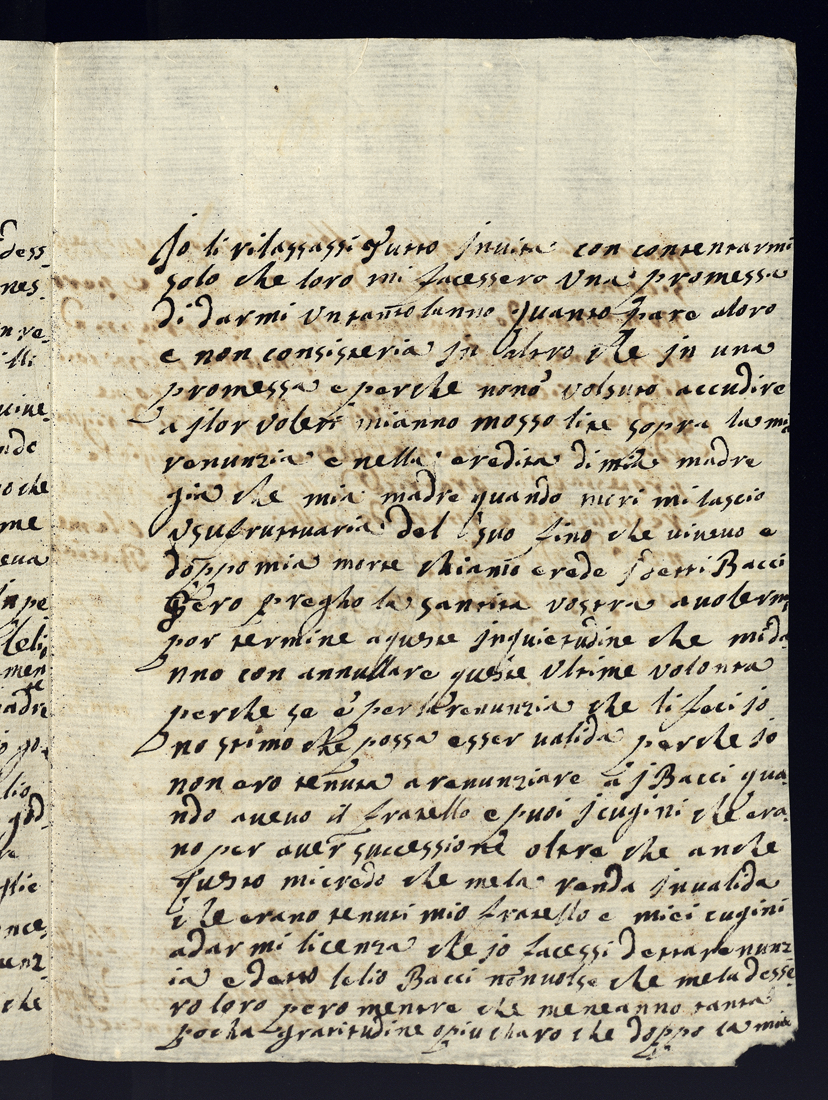 dess
nes.
nve-
illi
uive-
nde
o che
me
eva
inpe
leli
men
te
adre
io go-
lio
god-
re
nce
unz
che
Jo li rilassassi tutto invita con contentarmi
solo che loro mi facessero una promessa
di darmi un tanto lanno quanto pare aloro
e non consisteria in altro che in una
promessa e perche nono volsuto accudire
a jlor voleri mianno mosso lite sopra la mi
renunzia e nella eredita di mia madre
gia che mia madre quando mori mi lascio
usufruttuaria del suo fino che vivevo e
doppo mia morte chiamo erede j detti Bacci
Pero pregho la santita vostra a volerm
por termine a queste inquietudine che mida
nno con annullare queste ultime volonta
perche se e per la renunzia che li feci io
no stimo che possa esser valida perche io
non ero tenuta a renunziare a j Bacci qua
ndo avevo il fratello e puoi j cugini che era
no per aver successione oltre che anche
questo micredo che mela renda invalida
che erano tenuti mio fratello e miei cugini
adarmi licenza che io facessi detta renunz
ia e detto lelio Bacci non volse che mela desse
ro loro pero mentre che meneanno tanta
pocha gratitudine o piu charo che doppo la mia